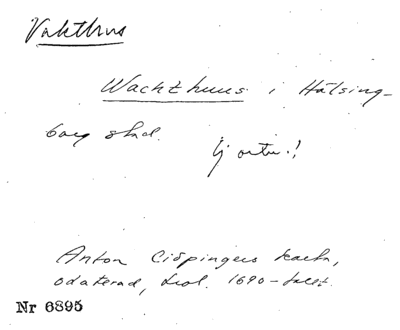 Vakthus
Wachthuus i Hälsing-
borg stad.
Ej ortn.!
Anton Ciöpingers karta,
odaterad, trol. 1690-talet.
Nr 6895